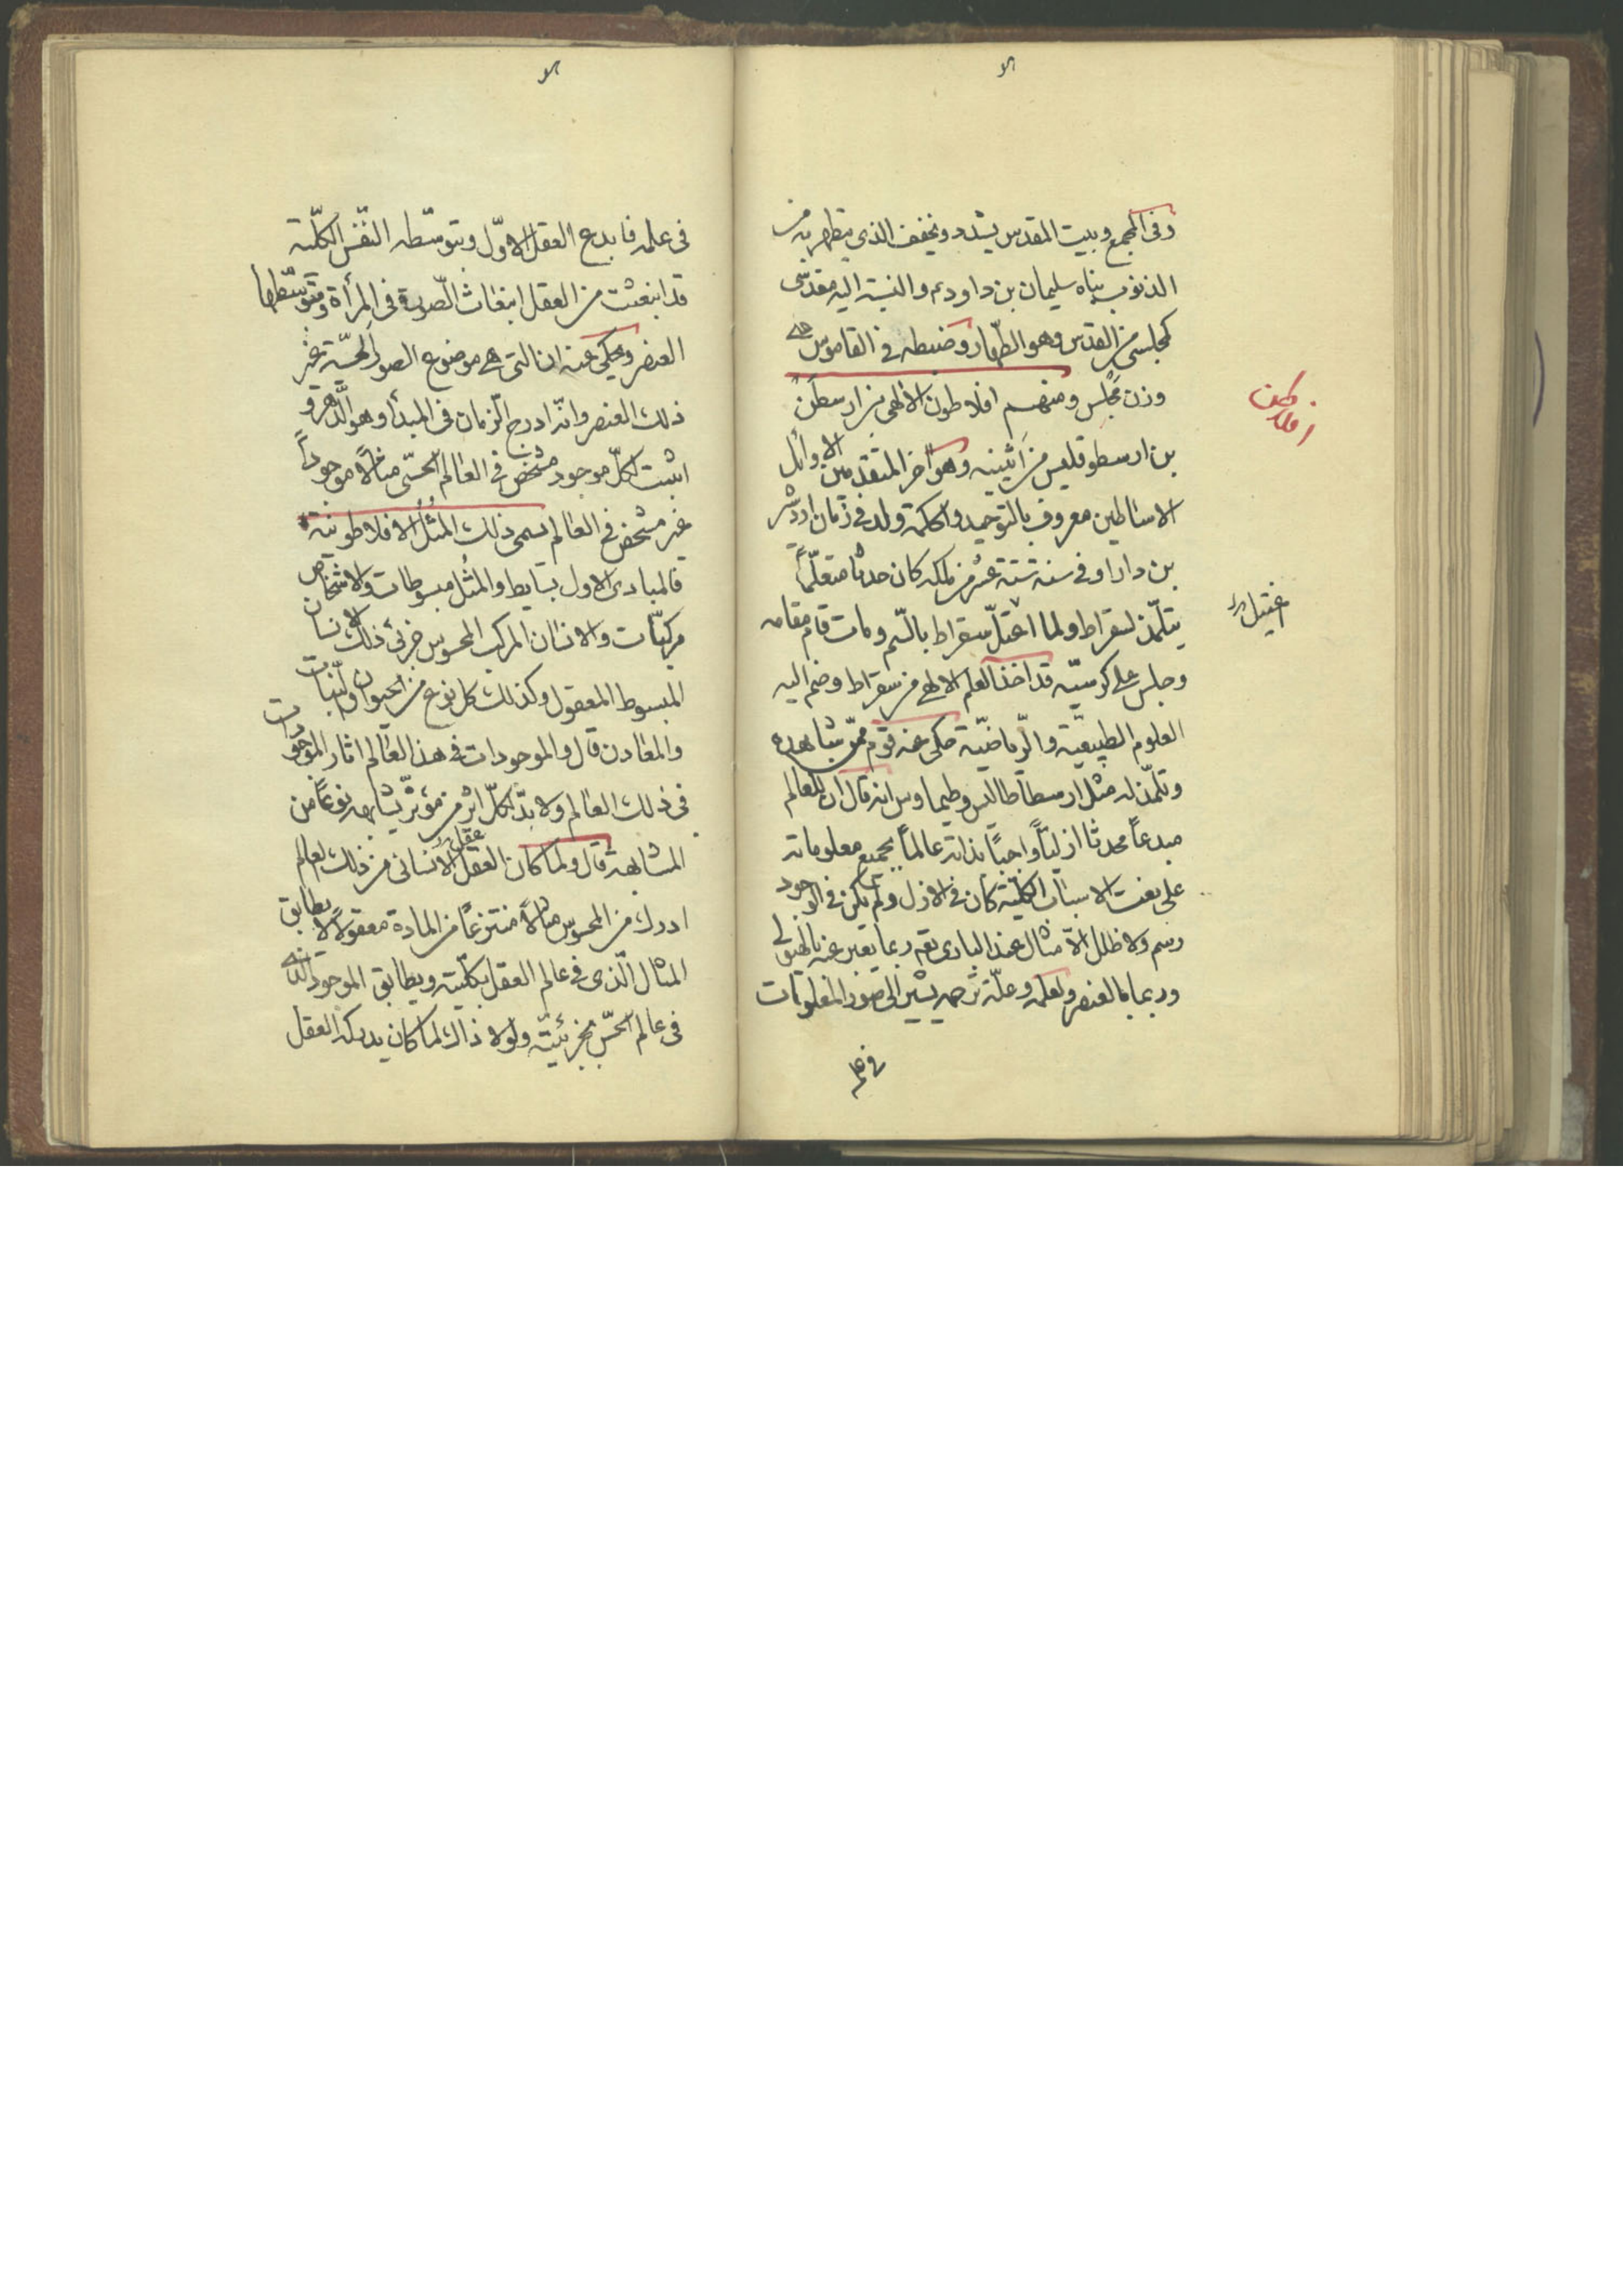 وفى المجمع وبيت المقدس يشدد ويخفف الذى يتطهر به من
الذنوب بناه سليمان بن داودعم والنسبة اليه مقدسى
كمجلسى من القدس وهو الطهار وضبطه فى القاموس على
وزن مجلس ومنهم افلاطون الالهى بن ارسطن
بن ارسطوقليس من اثينيه وهو اخر المتقدمين الاوائل
الاساطين معروف بالتوحيد والحكمة ولد فى زمان اردشير
بن دارا وفى سنة ستة عشر من ملكه كان حدثا متعلّماً
يتلمّذ لسقراط ولما اغتيل سقراط بالسّم ومات قام مقامه
وجلس على كرسيّه قد اخذ العلم الالهى من سقراط وضم اليه
العلوم الطبيعيّة والرّياضيّة حكى عنه قوم ممّن شاهده
وتلمّذ له مثل ارسطاطاليس وطيماوس انه قال ان للعالم
مبدعاً محدثا ازليّاً واجباً بذاته عالماً بجميع معلوماته
على نعت الاسباب الكلّية كان فى الازل ولم يكن فى الوجود
رسم ولا طلل الاّ مثال عند البارى تعه ربما يعبر عنه بالهيولى
وربما بالعنصر ولعله يشير الى صور المعلومات
فى علمه
افلاطون
اغتيل
فى علمه فابدع العقل الاوّل وبتوسّطه النّفس الكلّية
قد انبعثت من العقل انبعاث الصّورة فى المرأة وبتوسّطها
العنصر ويحكى عنه ان التى هى موضوع الصور الحسّية غير
ذلك العنصر وانّه ادرج الزمان فى المبدأ وهو الدّهر و
اثبت لكلّ موجود مشخّص فى العالم الحسّى مثالاً موجوداً
غير مشخص فى العالم يسمى ذلك المُثُل الافلاطونية
فالمبادى الاول بسايط والمثُل مبسوطات والاشخاص
مركّبات والانسان المركب المحسوس جزئى ذلك الانسان
المبسوط المعقول وكذلك كل نوع من الحيوان والنّبات
والمعادن قال والموجودات فى هذا العالم اثار الموجودات
فى ذلك العالم ولا بدّ لكلّ اثر من مؤثّر يشابهه نوعاً من
المشابهة قال ولما كان العقل الانسانى من ذلك العالم
ادرك من المحسوس مثالاً منتزعاً من المادة معقولاً يطابق
المثال الّذى فى عالم العقل بكلّيته ويطابق الموجود الذى
فى عالم الحسّ بجزئيّته ولولا ذلك لما كان يدركه العقل